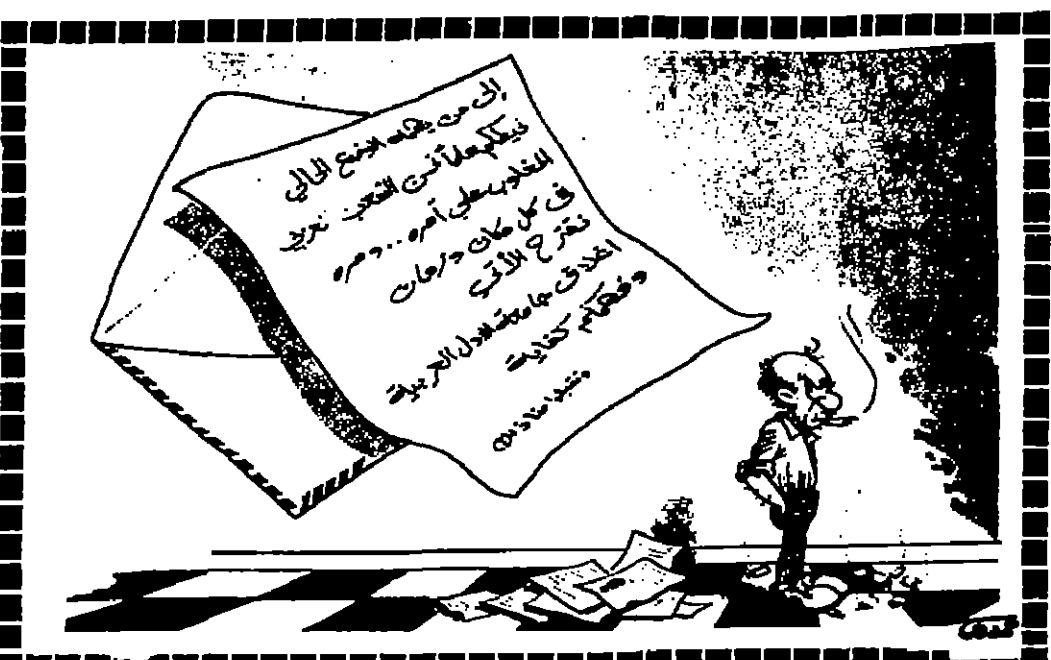 إلى من يهمه الوضع الحالي
نحيطكم علماً نحن الشعب العربي
المغلوب على أمره .. ومره
في كل مكان وزمان
نقترح الآتي
اغلاق جامعة الدول العربية
وفهمكم كفاية